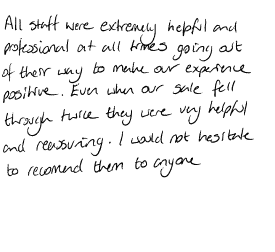 All staff were extremely helpful and
professional at all times going out
of their way to make our experience
positive. Even when our sale fell
through twice they were very helpful
and reassuring. I would not hesitate
to recomend them to anyone